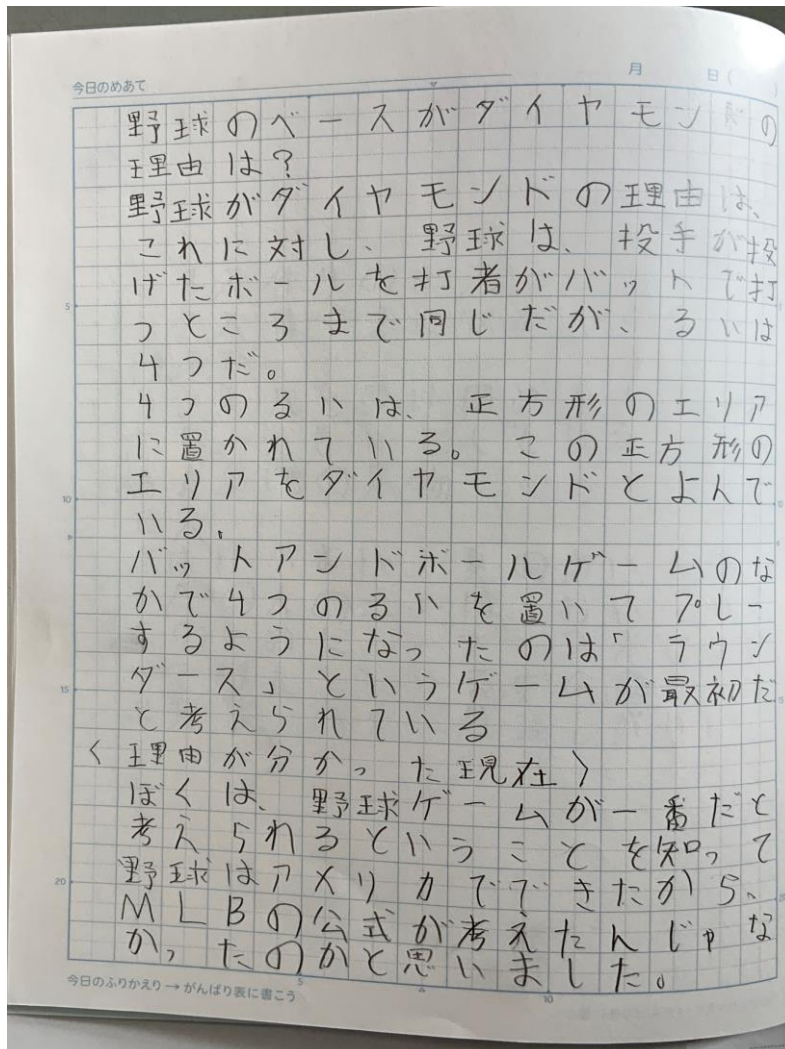 今日のめあて
月 日( )
野球のベースがダイヤモンドの
理由は?
野球がダイヤモンドの理由は、
これに対し、野球は、投手が投
げたボールを打者がバットで打
つところまで同じだが、るいは
4つだ。
4つのるいは、正方形のエリア
に置かれている。この正方形の
エリアをダイヤモンドとよんで
いる。
バットアンドボールゲームのな
かで4つのるいを置いてプレー
するようになったのは「ラウン
ダース」というゲームが最初だ
と考えられている
〈理由が分かった現在〉
ぼくは、野球ゲームが一番だと
考えられるということを知って
野球はアメリカでできたから、
MLBの公式が考えたんじゃな
かったのかと思いました。
今日のふりかえり→がんばり表に書こう
5
10
15
20
5
10